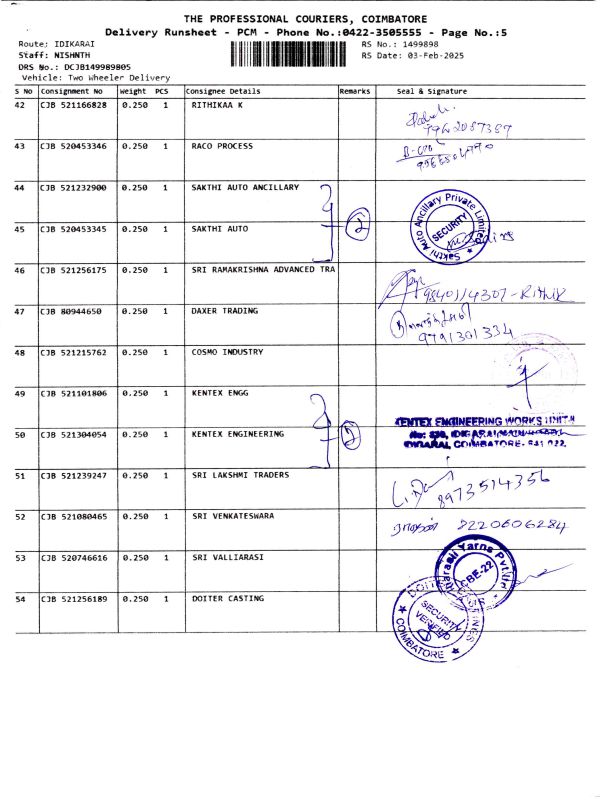 THE PROFESSIONAL COURIERS, COIMBATORE
Delivery Runsheet - PCM - Phone No.:0422-3505555 - Page No.:5
Route; IDIKARAI
RS No.: 1499898
Staff: NISHNTH
RS Date: 03-Feb-2025
DRS No.: DCJB149989805
Vehicle: Two Wheeler Delivery
S No Consignment No Weight PCS Consignee Details Remarks Seal & Signature
42 CJB 521166828 0.250 1 RITHIKAA K
43 CJB 520453346 0.250 1 RACO PROCESS
44 CJB 521232900 0.250 1 SAKTHI AUTO ANCILLARY
Sakthi Auto Ancillary Private Limited
SECURITY
2
45 CJB 520453345 0.250 1 SAKTHI AUTO
46 CJB 521256175 0.250 1 SRI RAMAKRISHNA ADVANCED TRA
9840114307 - Rithik
47 CJB 80944650 0.250 1 DAXER TRADING
9791301334
48 CJB 521215762 0.250 1 COSMO INDUSTRY
49 CJB 521101806 0.250 1 KENTEX ENGG
KENTEX ENGINEERING WORKS
2
50 CJB 521304054 0.250 1 KENTEX ENGINEERING
COIMBATORE- 641 022.
51 CJB 521239247 0.250 1 SRI LAKSHMI TRADERS
8973514356
52 CJB 521080465 0.250 1 SRI VENKATESWARA
8220606284
53 CJB 520746616 0.250 1 SRI VALLIARASI
Yarns Pvt Ltd
CBE-22
54 CJB 521256189 0.250 1 DOITER CASTING
DOITER
SECURITY
VERIFIED
COIMBATORE